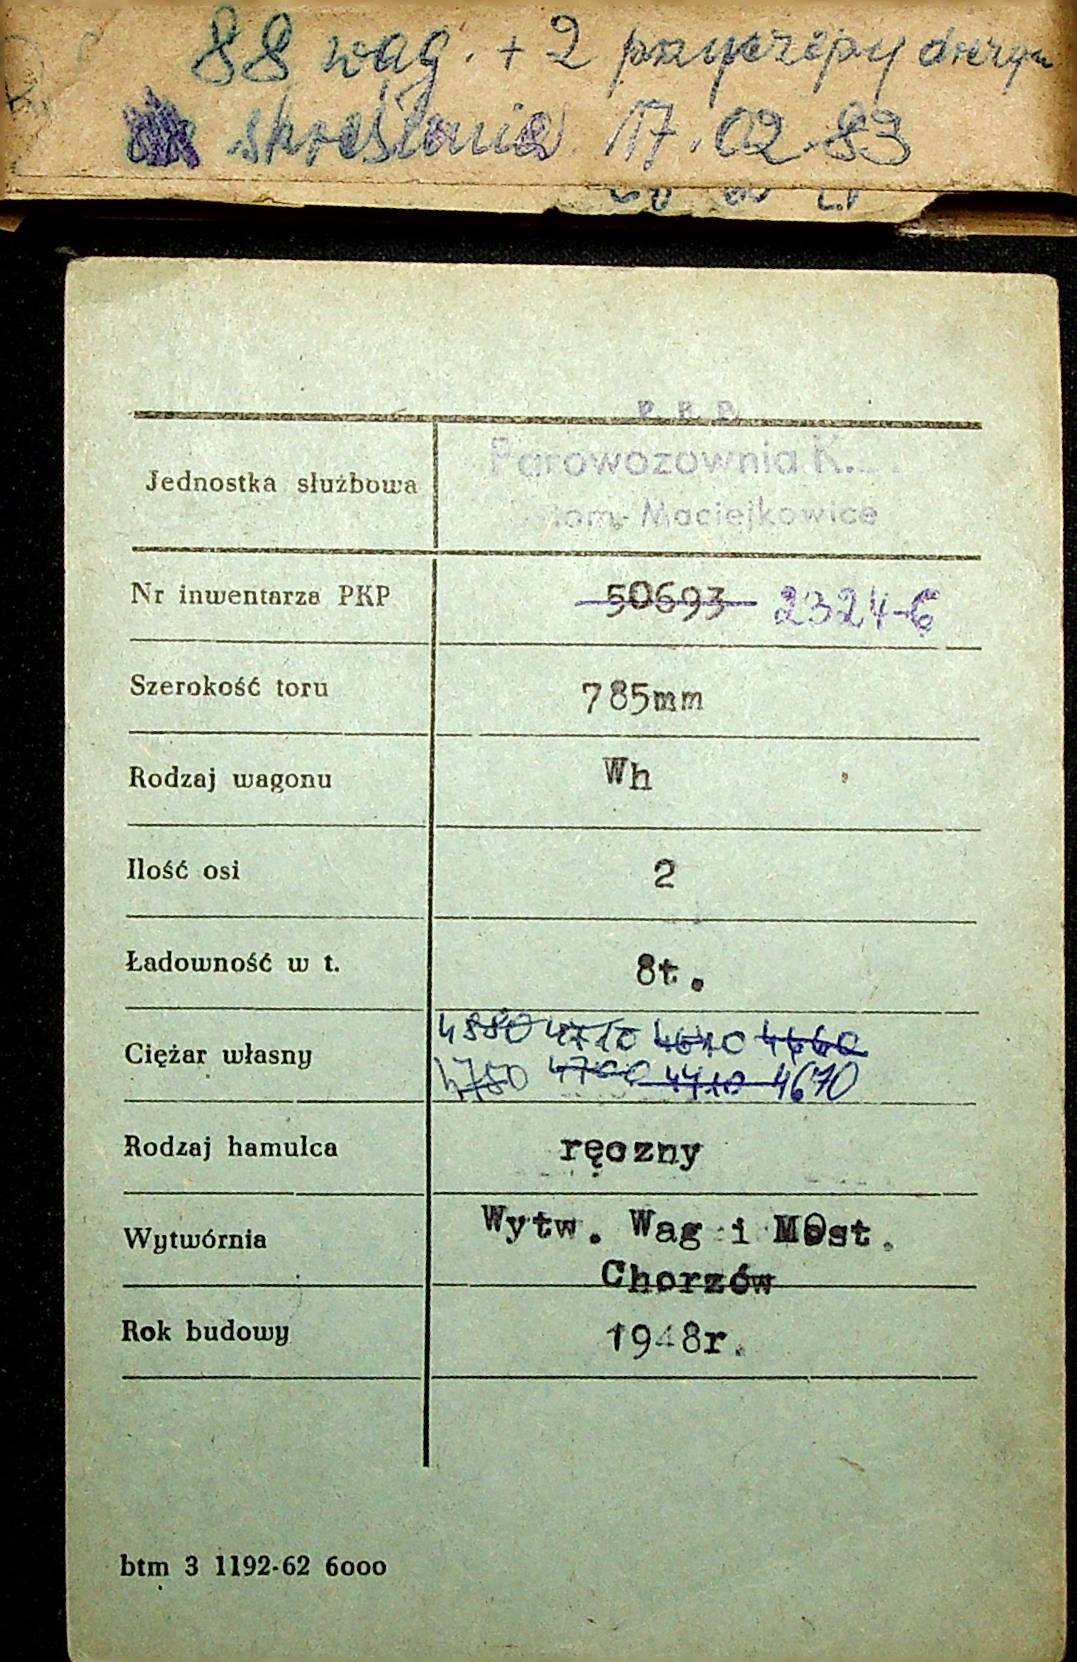 88 wag. + 2 przyczepy drezyn
skreślenie 17.02.83
P. K. P.
Parowozownia K.
Bytom-Maciejkowice
Jednostka służbowa
Nr inwentarza PKP 50693 2324-6
Szerokość toru 785mm
Rodzaj wagonu Wh
Ilość osi 2
Ładowność w t. 8t.
4880 4710 4640 4660
Ciężar własny
4750 4700 4410 4670
Rodzaj hamulca ręczny
Wytwórnia Wytw. Wag i Most.
Chorzów
Rok budowy 1948r.
btm 3 1192-62 6000